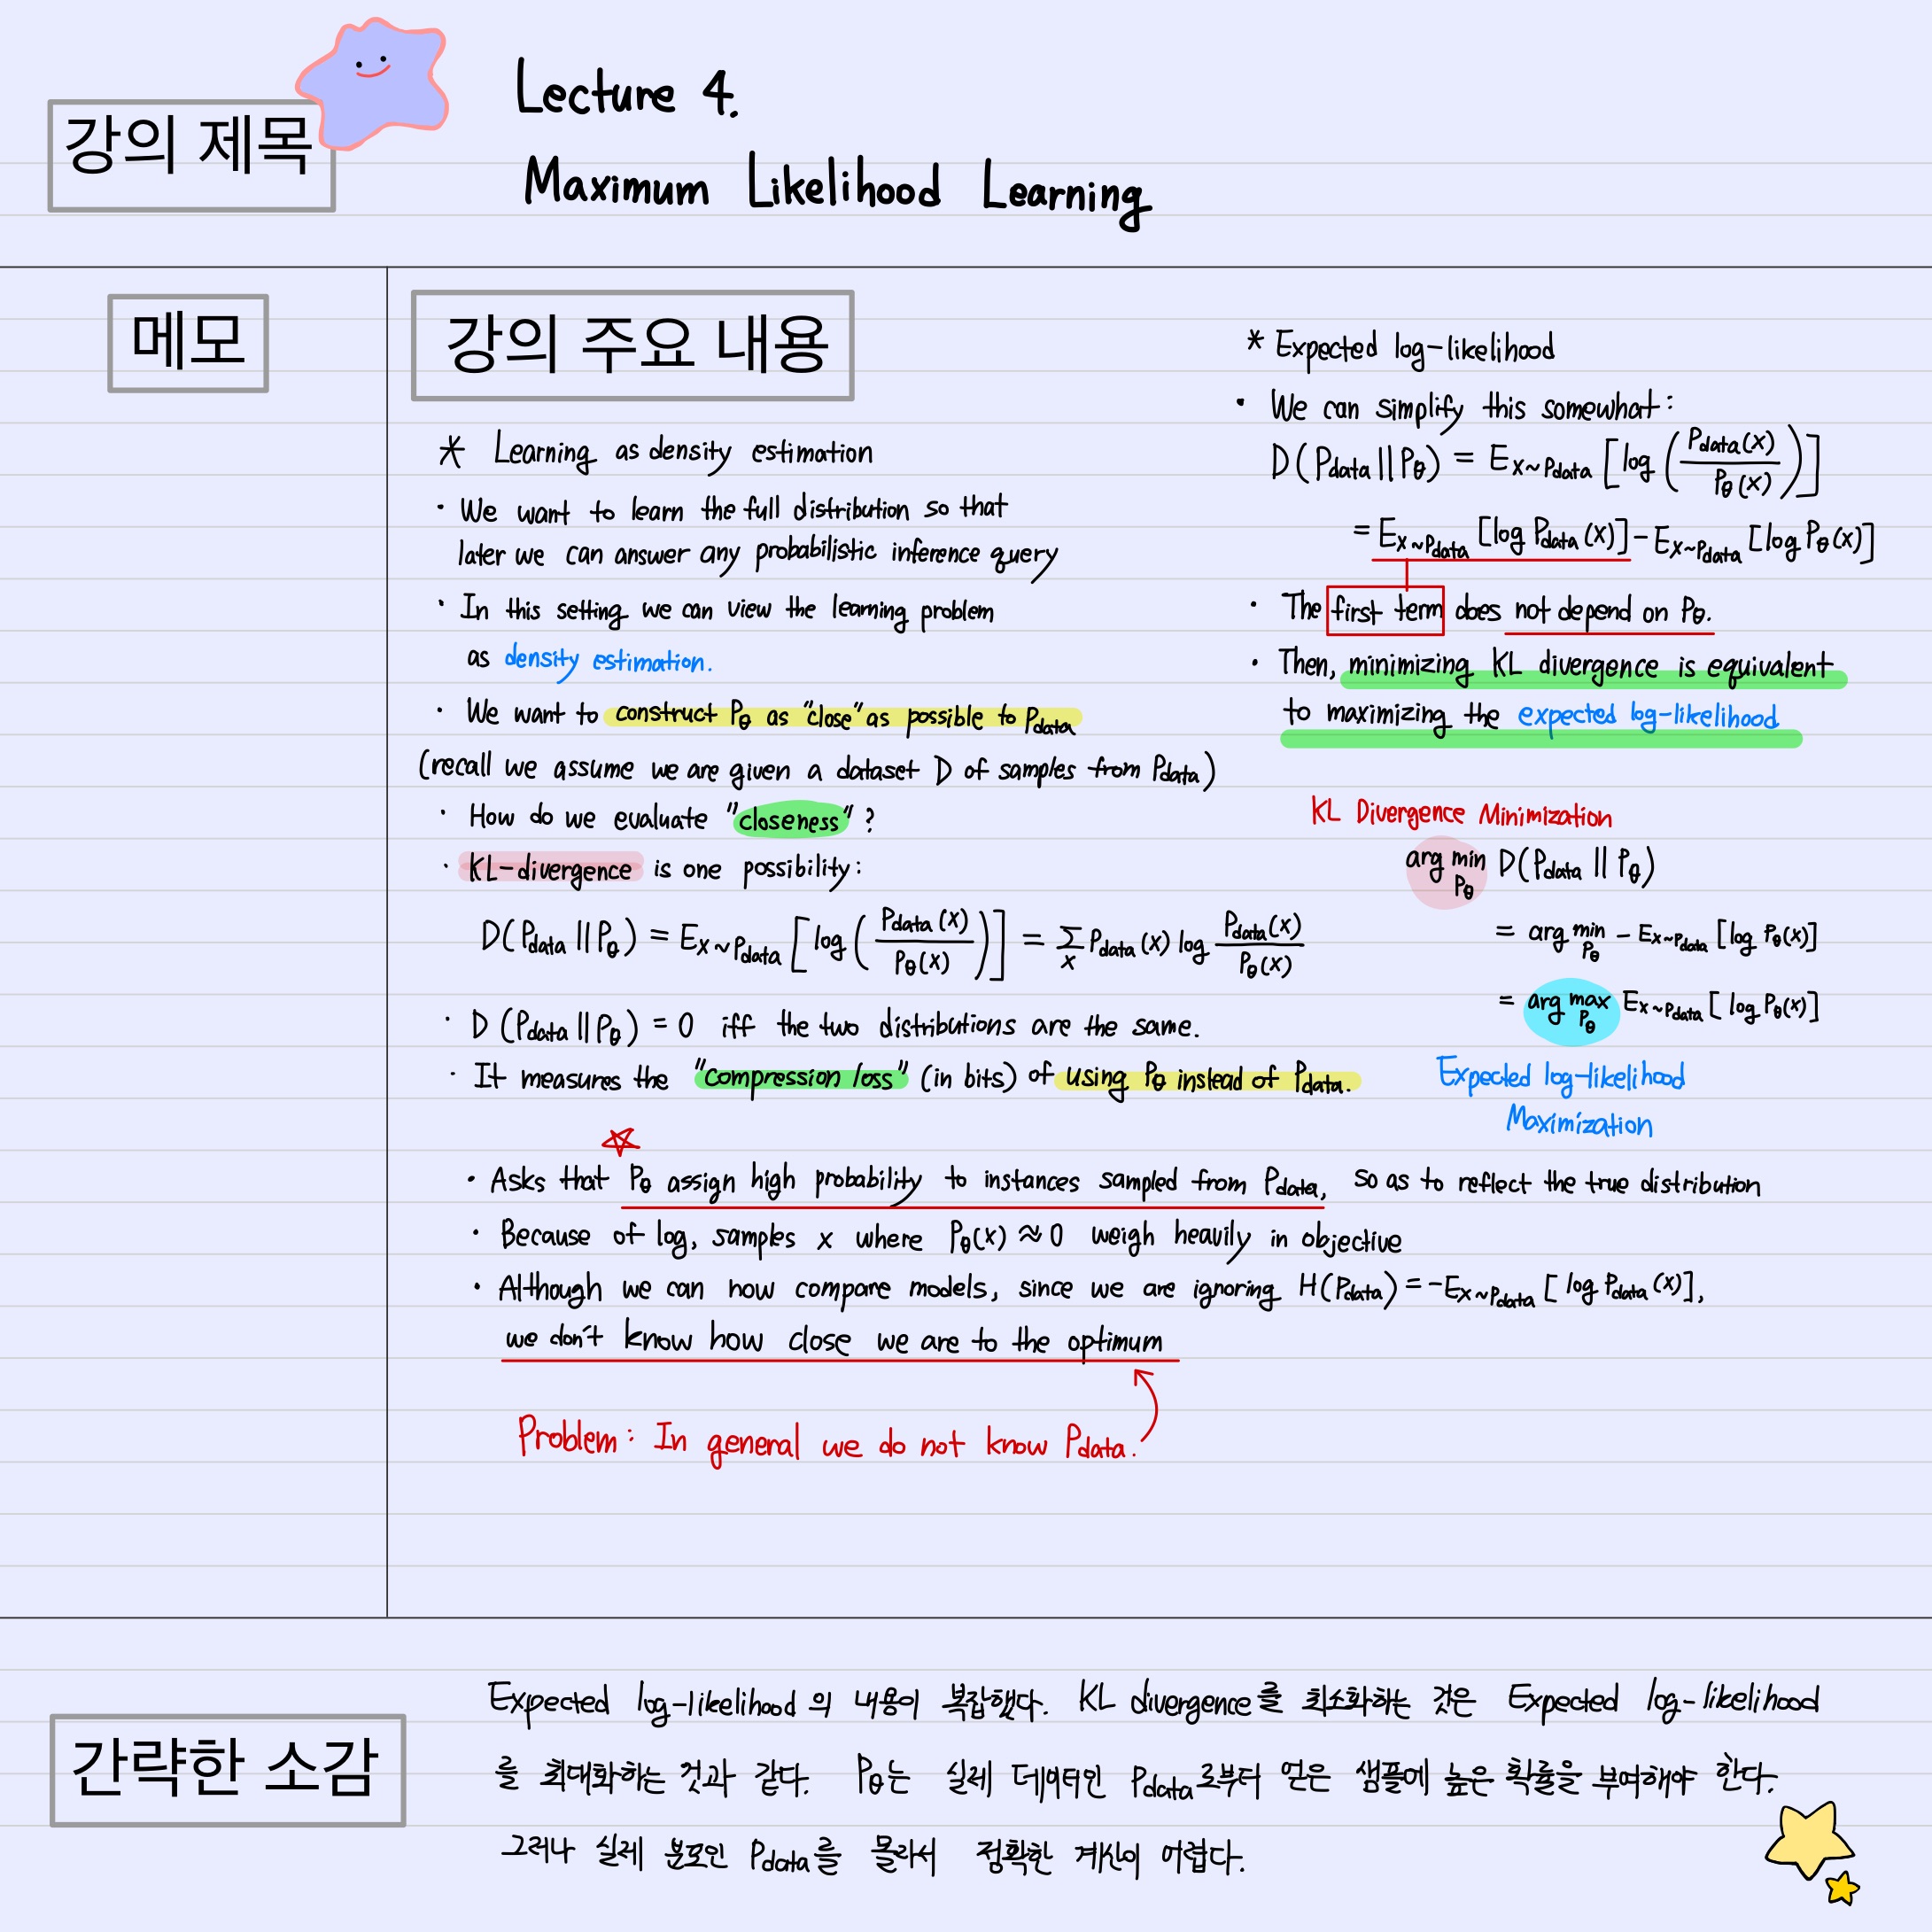 강의 제목
Lecture 4.
Maximum Likelihood Learning
메모
강의 주요 내용
* Learning as density estimation
· We want to learn the full distribution so that
later we can answer any probabilistic inference query
· In this setting we can view the learning problem
as density estimation.
· We want to construct Pθ as "close" as possible to Pdata
(recall we assume we are given a dataset D of samples from Pdata)
· How do we evaluate "closeness"?
· KL-divergence is one possibility:
D(Pdata || Pθ) = E x~Pdata [log(Pdata(x)/Pθ(x))] = Σx Pdata(x) log Pdata(x)/Pθ(x)
· D(Pdata || Pθ) = 0 iff the two distributions are the same.
· It measures the "compression loss" (in bits) of using Pθ instead of Pdata.
* Expected log-likelihood
· We can simplify this somewhat:
D(Pdata || Pθ) = E x~Pdata [log(Pdata(x)/Pθ(x))]
= E x~Pdata [log Pdata(x)] - E x~Pdata [log Pθ(x)]
· The first term does not depend on Pθ.
· Then, minimizing KL divergence is equivalent
to maximizing the expected log-likelihood
KL Divergence Minimization
arg min Pθ D(Pdata || Pθ)
= arg min Pθ - E x~Pdata [log Pθ(x)]
= arg max Pθ E x~Pdata [log Pθ(x)]
Expected log-likelihood
Maximization
· Asks that Pθ assign high probability to instances sampled from Pdata, so as to reflect the true distribution
· Because of log, samples x where Pθ(x) ≈ 0 weigh heavily in objective
· Although we can now compare models, since we are ignoring H(Pdata) = -E x~Pdata [log Pdata(x)],
we don't know how close we are to the optimum
Problem: In general we do not know Pdata.
간략한 소감
Expected log-likelihood의 내용이 복잡했다. KL divergence를 최소화하는 것은 Expected log-likelihood
를 최대화하는 것과 같다. Pθ는 실제 데이터인 Pdata로부터 얻은 샘플에 높은 확률을 부여해야 한다.
그러나 실제 분포인 Pdata를 몰라서 정확한 계산이 어렵다.